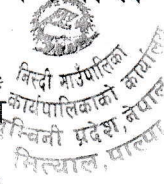 बिस्दी गाउँपालिका
कार्यपालिकाको कार्यालय
प्रदेश, नेपाल
मित्याल, पाल्पा